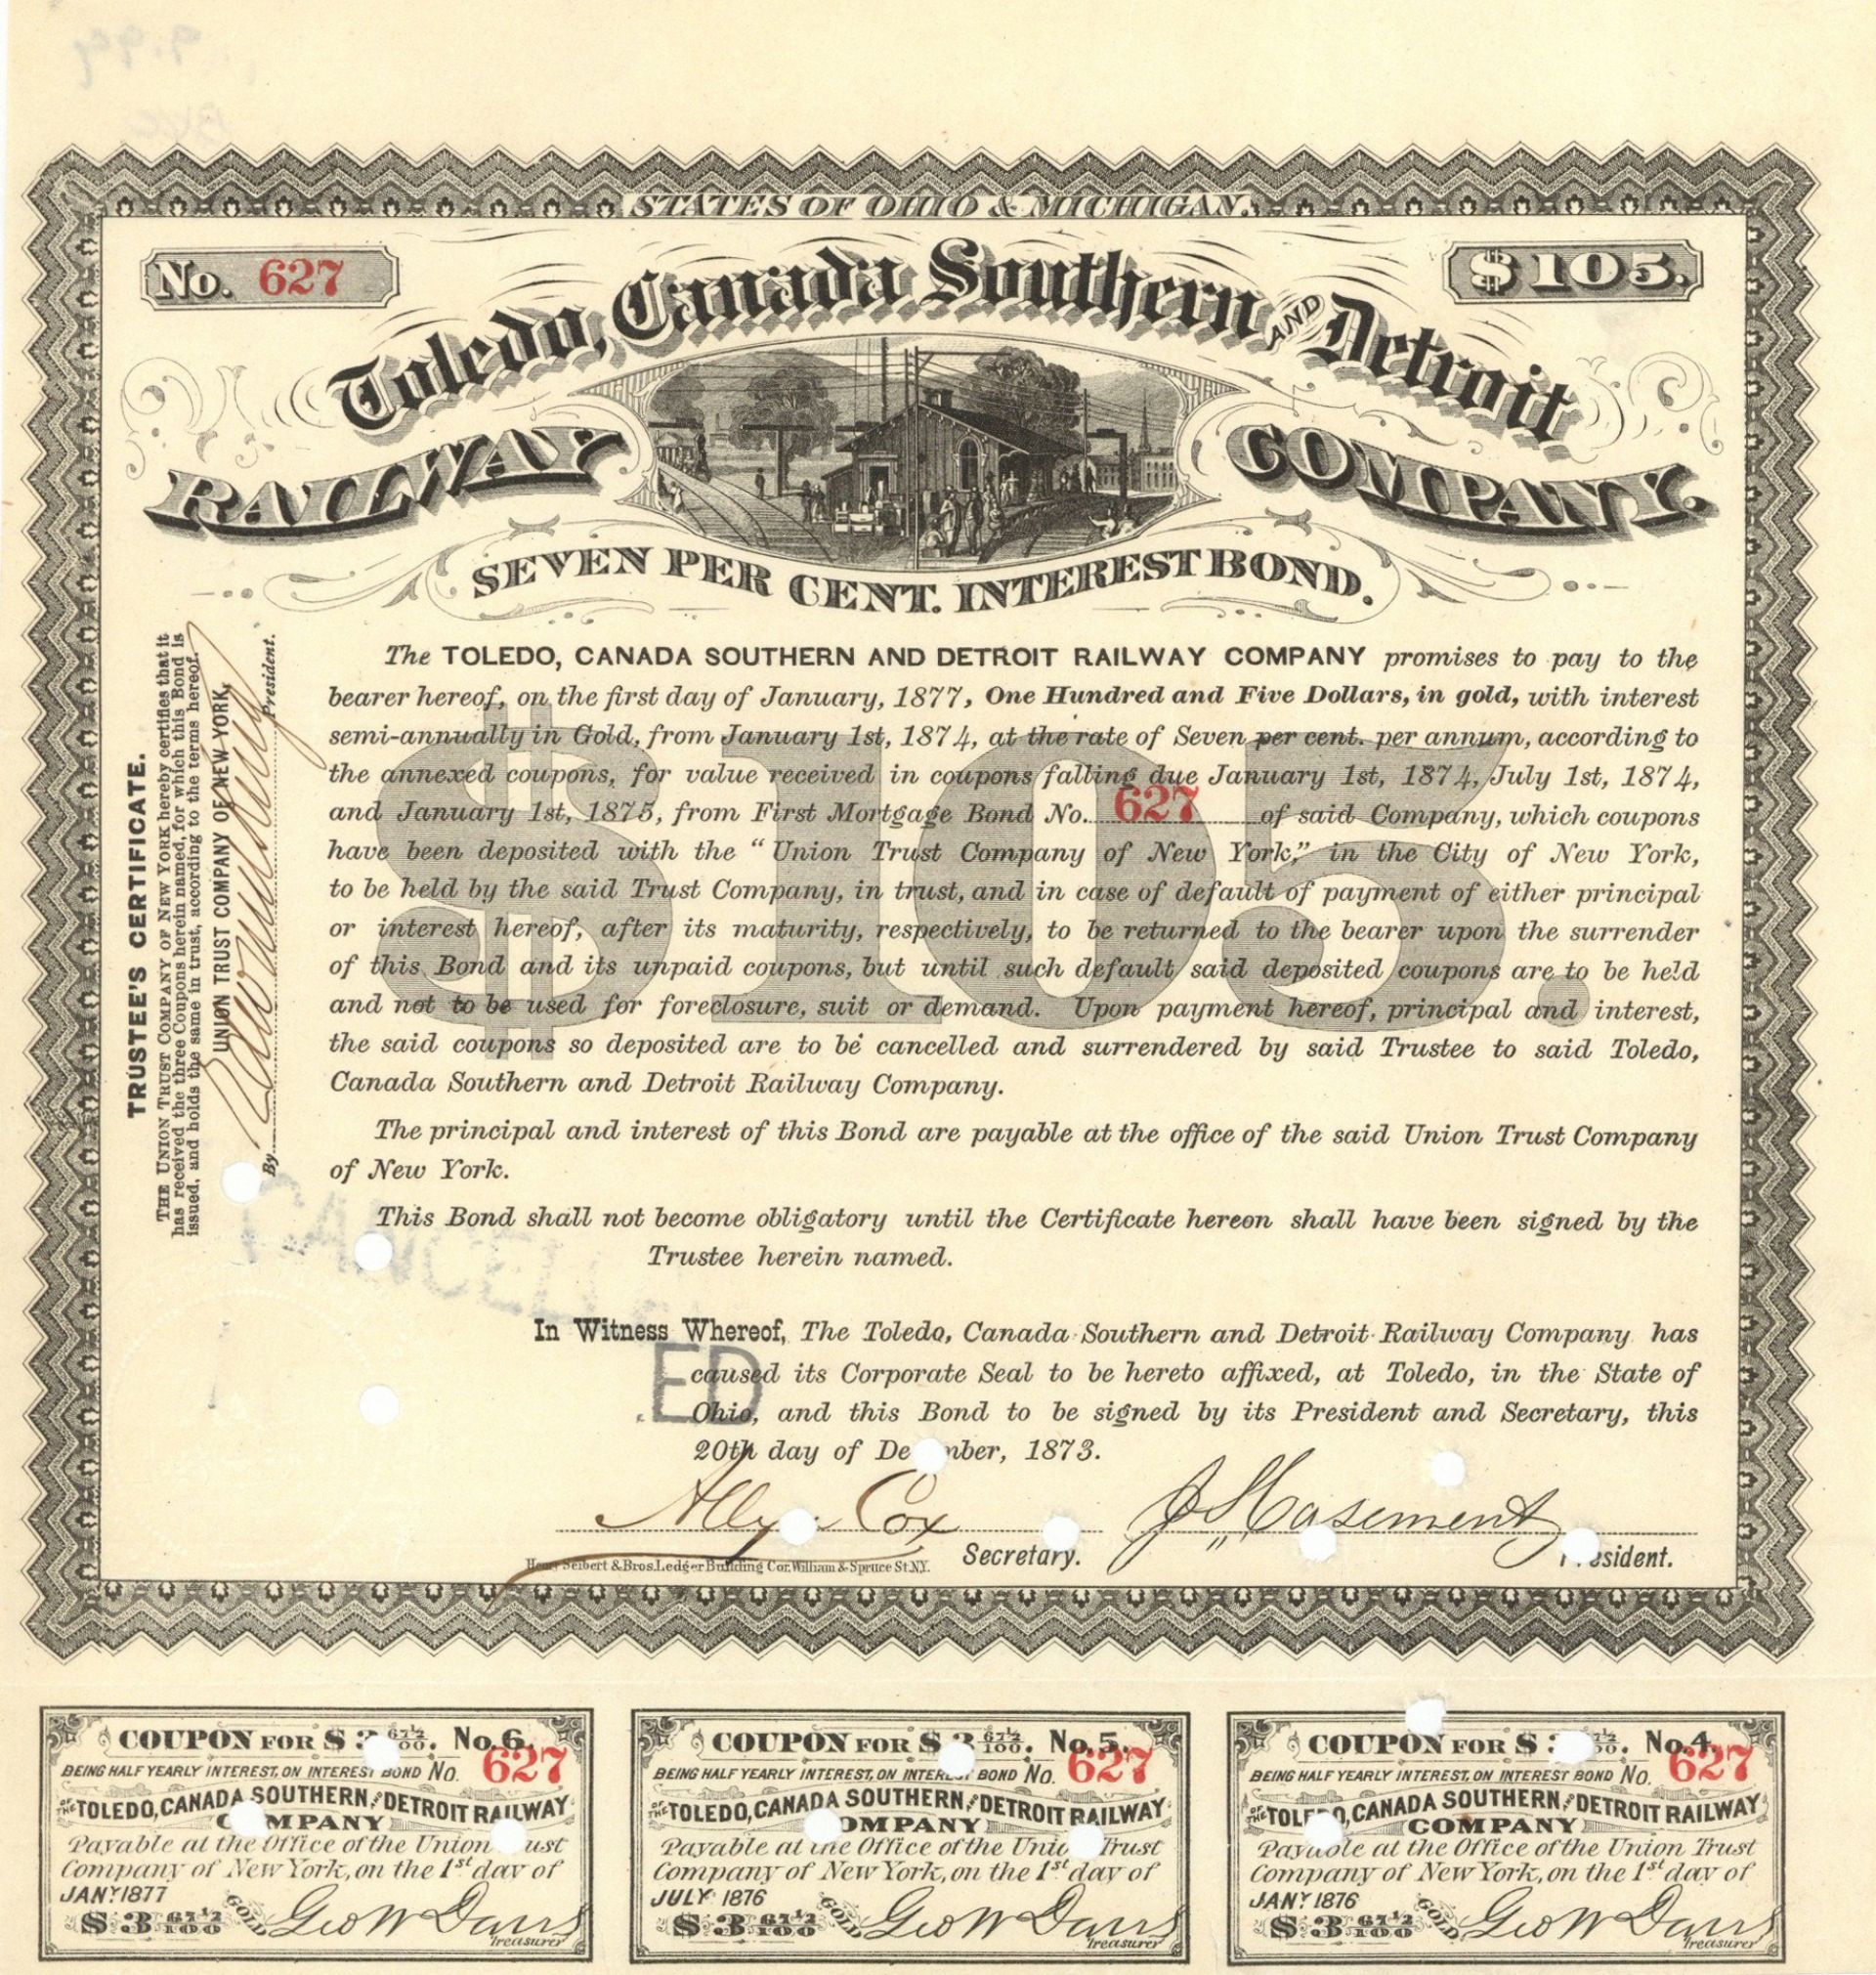 STATES OF OHIO & MICHIGAN.
No. 627
$105.
Toledo, Canada Southern AND Detroit
RAILWAY COMPANY.
SEVEN PER CENT. INTEREST BOND.
The TOLEDO, CANADA SOUTHERN AND DETROIT RAILWAY COMPANY promises to pay to the
bearer hereof, on the first day of January, 1877, One Hundred and Five Dollars, in gold, with interest
semi-annually in Gold, from January 1st, 1874, at the rate of Seven per cent. per annum, according to
the annexed coupons, for value received in coupons falling due January 1st, 1874, July 1st, 1874,
and January 1st, 1875, from First Mortgage Bond No. 627 of said Company, which coupons
have been deposited with the "Union Trust Company of New York," in the City of New York,
to be held by the said Trust Company, in trust, and in case of default of payment of either principal
or interest hereof, after its maturity, respectively, to be returned to the bearer upon the surrender
of this Bond and its unpaid coupons, but until such default said deposited coupons are to be held
and not to be used for foreclosure, suit or demand. Upon payment hereof, principal and interest,
the said coupons so deposited are to be cancelled and surrendered by said Trustee to said Toledo,
Canada Southern and Detroit Railway Company.
$105.
The principal and interest of this Bond are payable at the office of the said Union Trust Company
of New York.
This Bond shall not become obligatory until the Certificate hereon shall have been signed by the
Trustee herein named.
In Witness Whereof, The Toledo, Canada Southern and Detroit Railway Company has
caused its Corporate Seal to be hereto affixed, at Toledo, in the State of
Ohio, and this Bond to be signed by its President and Secretary, this
20th day of De mber, 1873.
ED
Cox
Secretary.
J S Casement
esident.
Henry Seibert & Bros. Ledger Building Cor. William & Spruce St. N.Y.
TRUSTEE'S CERTIFICATE.
THE UNION TRUST COMPANY OF NEW YORK hereby certifies that it
has received the three Coupons herein named, for which this Bond is
issued, and holds the same in trust, according to the terms hereof.
UNION TRUST COMPANY OF NEW YORK,
By President.
COUPON FOR $ 3 67½/100. No. 6.
BEING HALF YEARLY INTEREST, ON INTEREST BOND No. 627
OF THE TOLEDO, CANADA SOUTHERN, AND DETROIT RAILWAY
C MPANY
Payable at the Office of the Union ust
Company of New York, on the 1st day of
JANY. 1877
$ 3 67½/100 GOLD Geo W Davis
Treasurer
COUPON FOR $ 3 67½/100. No. 5.
BEING HALF YEARLY INTEREST, ON INTEREST BOND No. 627
OF THE TOLEDO, CANADA SOUTHERN, AND DETROIT RAILWAY
OMPANY
Payable at the Office of the Unio Trust
Company of New York, on the 1st day of
JULY 1876
$ 3 67½/100 GOLD Geo W Davis
Treasurer
COUPON FOR $ No. 4.
BEING HALF YEARLY INTEREST, ON INTEREST BOND No. 627
OF THE TOLEDO, CANADA SOUTHERN, AND DETROIT RAILWAY
COMPANY
Payable at the Office of the Union Trust
Company of New York, on the 1st day of
JANY. 1876
$ 3 67½/100 GOLD Geo W Davis
Treasurer